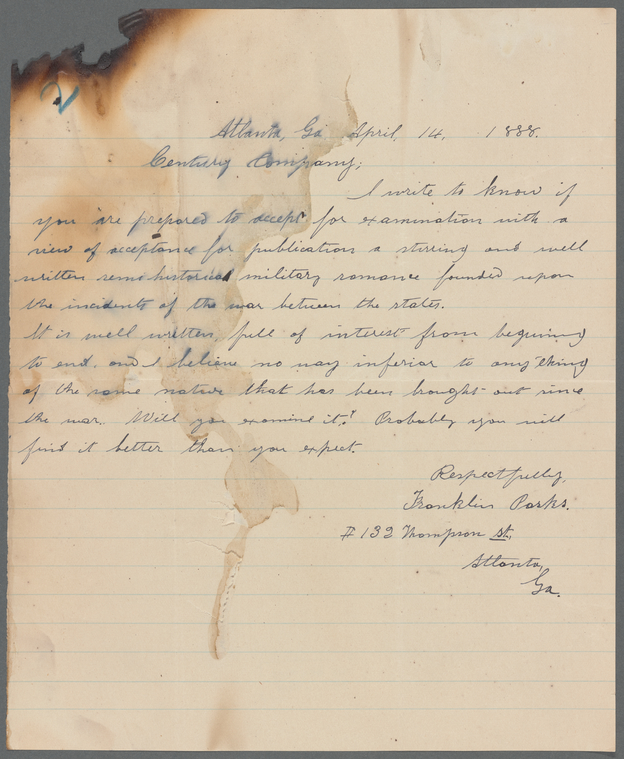 2
Atlanta, Ga April, 14, 1888.
Century Company;
I write to know if
you are prepared to accept for examination with a
view of acceptance for publication a stirring and well
written semi historical military romance founded upon
the incidents of the war between the states.
It is well written, full of interest from begining
to end. and I believe no way inferior to any thing
of the same nature that has been brought out since
the war. Will you examine it? Probably you will
find it better than you expect.
Respectfully,
Franklin Parks.
# 132 Thompson st,
Atlanta,
Ga.